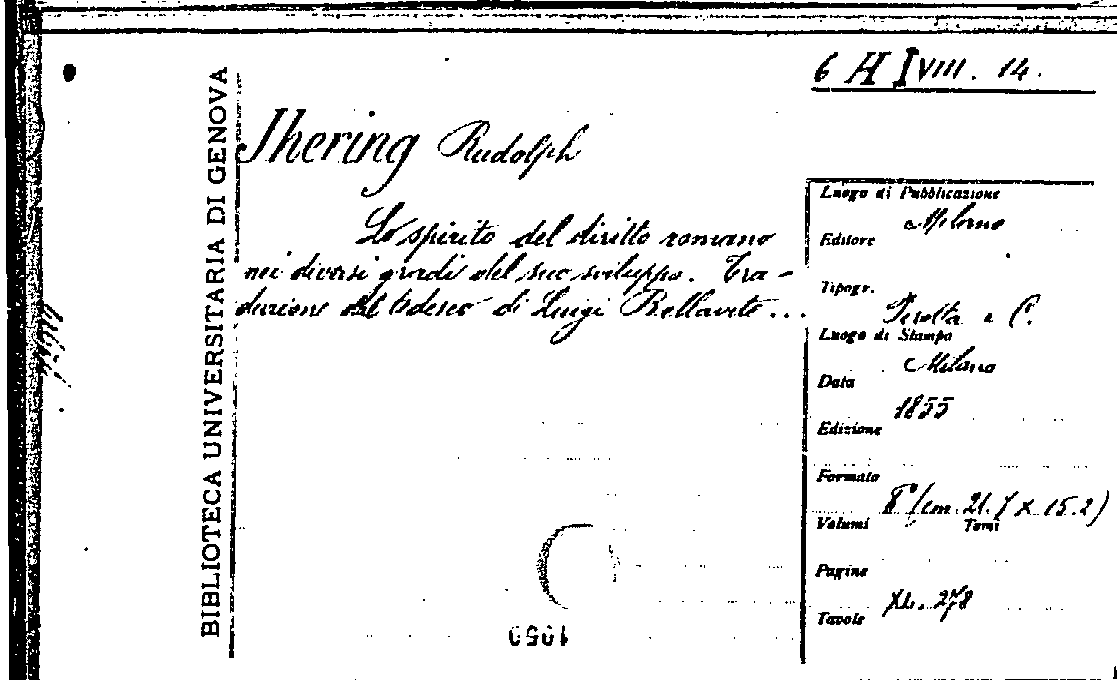 6 H I VIII. 14.
BIBLIOTECA UNIVERSITARIA DI GENOVA
Jhering Rudolph
Lo spirito del diritto romano
nei diversi gradi del suo sviluppo. Tra-
duzione dal tedesco di Luigi Bellavite...
Luogo di Pubblicazione
Milano
Editore
Tipogr.
e C.
Luogo di Stampa
Milano
Data
1855
Edizione
Formato
8° (cm. 21.7 x 15.2)
Volumi Tomi
Pagine
XL. 278
Tavole